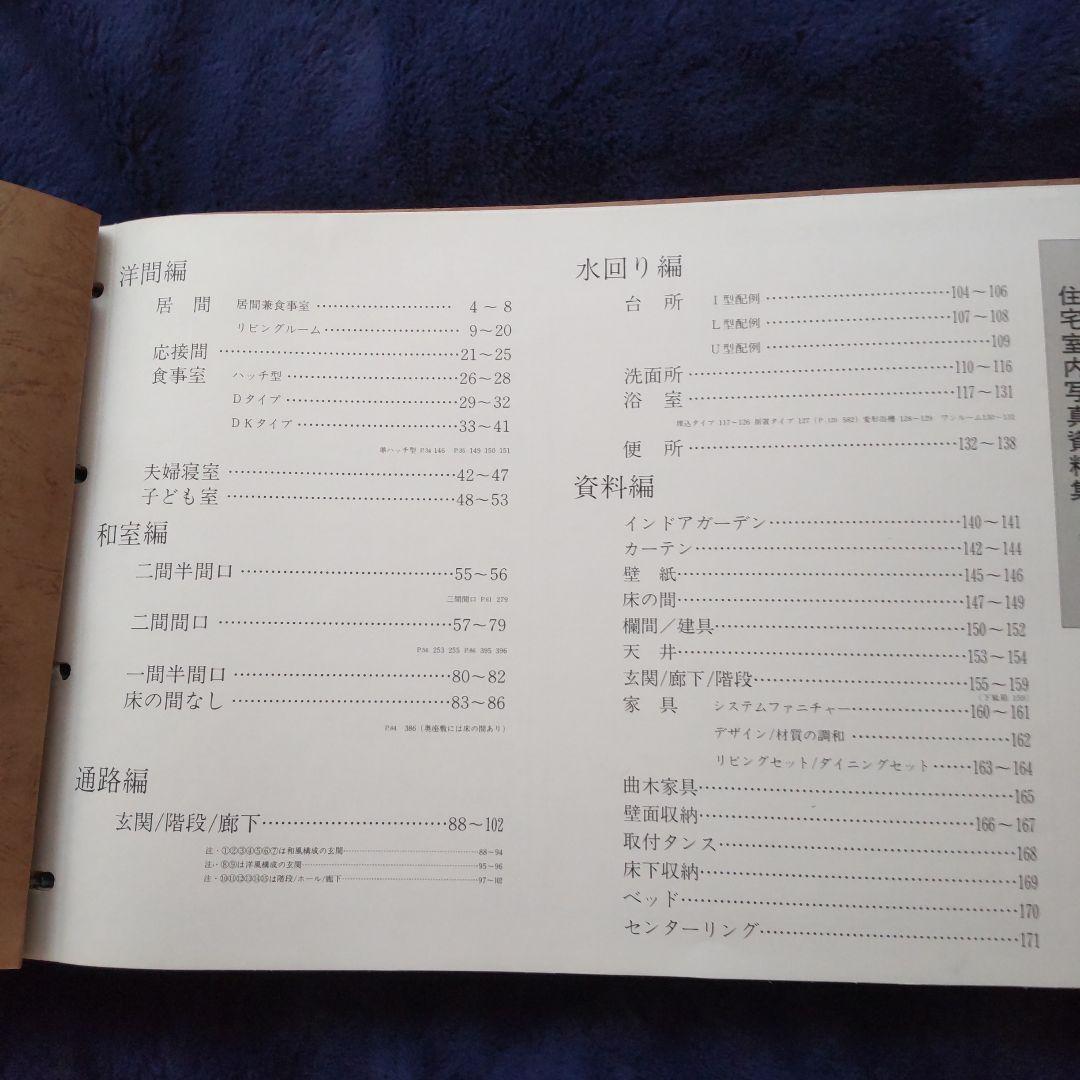 洋間編
居　間　居間兼食事室 …………………… 4～8
リビングルーム …………………… 9～20
応接間 …………………………………21～25
食事室　ハッチ型 ………………………26～28
Dタイプ ………………………29～32
DKタイプ ………………………33～41
準ハッチ型 P.34 146 P.35 149 150 151
夫婦寝室 …………………………………42～47
子ども室 …………………………………48～53
和室編
二間半間口 ………………………………55～56
三間間口 P.61 279
二間間口 …………………………………57～79
P.56 253 255 P.86 395 396
一間半間口 ………………………………80～82
床の間なし ………………………………83～86
P.84 386（奥座敷には床の間あり）
通路編
玄関/階段/廊下…………………………88～102
注・①②③④⑤⑥⑦は和風構成の玄関……………………88～94
注・⑧⑨は洋風構成の玄関……………………95～96
注・⑩⑪⑫⑬⑭⑮は階段/ホール/廊下……………………97～102
水回り編
台　所　I型配例 …………………………104～106
L型配例 …………………………107～108
U型配例 …………………………109
洗面所 ……………………………………110～116
浴　室 ……………………………………117～131
埋込タイプ 117～126 据置タイプ 127（P.120 582）変形浴槽 128～129 ワンルーム130～132
便　所 ……………………………………132～138
資料編
インドアガーデン…………………………140～141
カーテン……………………………………142～144
壁　紙………………………………………145～146
床の間………………………………………147～149
欄間／建具…………………………………150～152
天　井………………………………………153～154
玄関/廊下/階段……………………………155～159
（下駄箱 159）
家　具　システムファニチャー…………160～161
デザイン/材質の調和 ……………………162
リビングセット/ダイニングセット ……163～164
曲木家具……………………………………165
壁面収納……………………………………166～167
取付タンス…………………………………168
床下収納……………………………………169
ベッド………………………………………170
センターリング……………………………171
住宅室内写真資料集